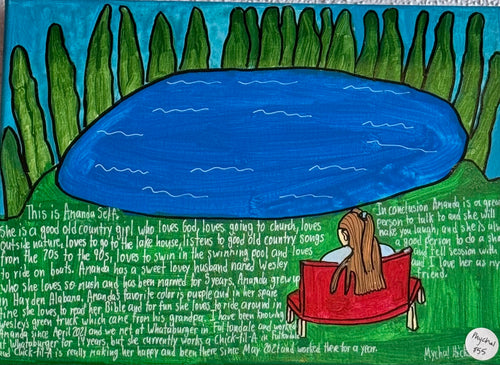 This is Amanda Self.
She is a good old country girl who loves God, loves going to church, loves
outside nature, loves to go to the lake house, listens to good old country songs
from the 70s to the 90s, loves to swim in the swimming pool and loves
to ride on boats. Amanda has a sweet lovey husband named Wesley
who she loves so much and has been married for 5 years. Amanda grew up
in Hayden Alabama. Amanda's favorite color is purple and in her spare
time she loves to read her Bible and for fun she loves to ride around in
Wesley's green truck which came from his grandpa. I have been knowing
Amanda since 2021 and we met at Whataburger in Fultondale and worked
at Whataburger for 14 years, but she currently works a Chick-fil-A in
and Chick-fil-A is really making her happy and been there since May 2021 and worked there for a year.
In conclusion Amanda is a great
person to talk to and she will
make you laugh, and she is also
a good person to do a show
and tell session with
I love her as my
friend.
Mychal
Mychal
$55